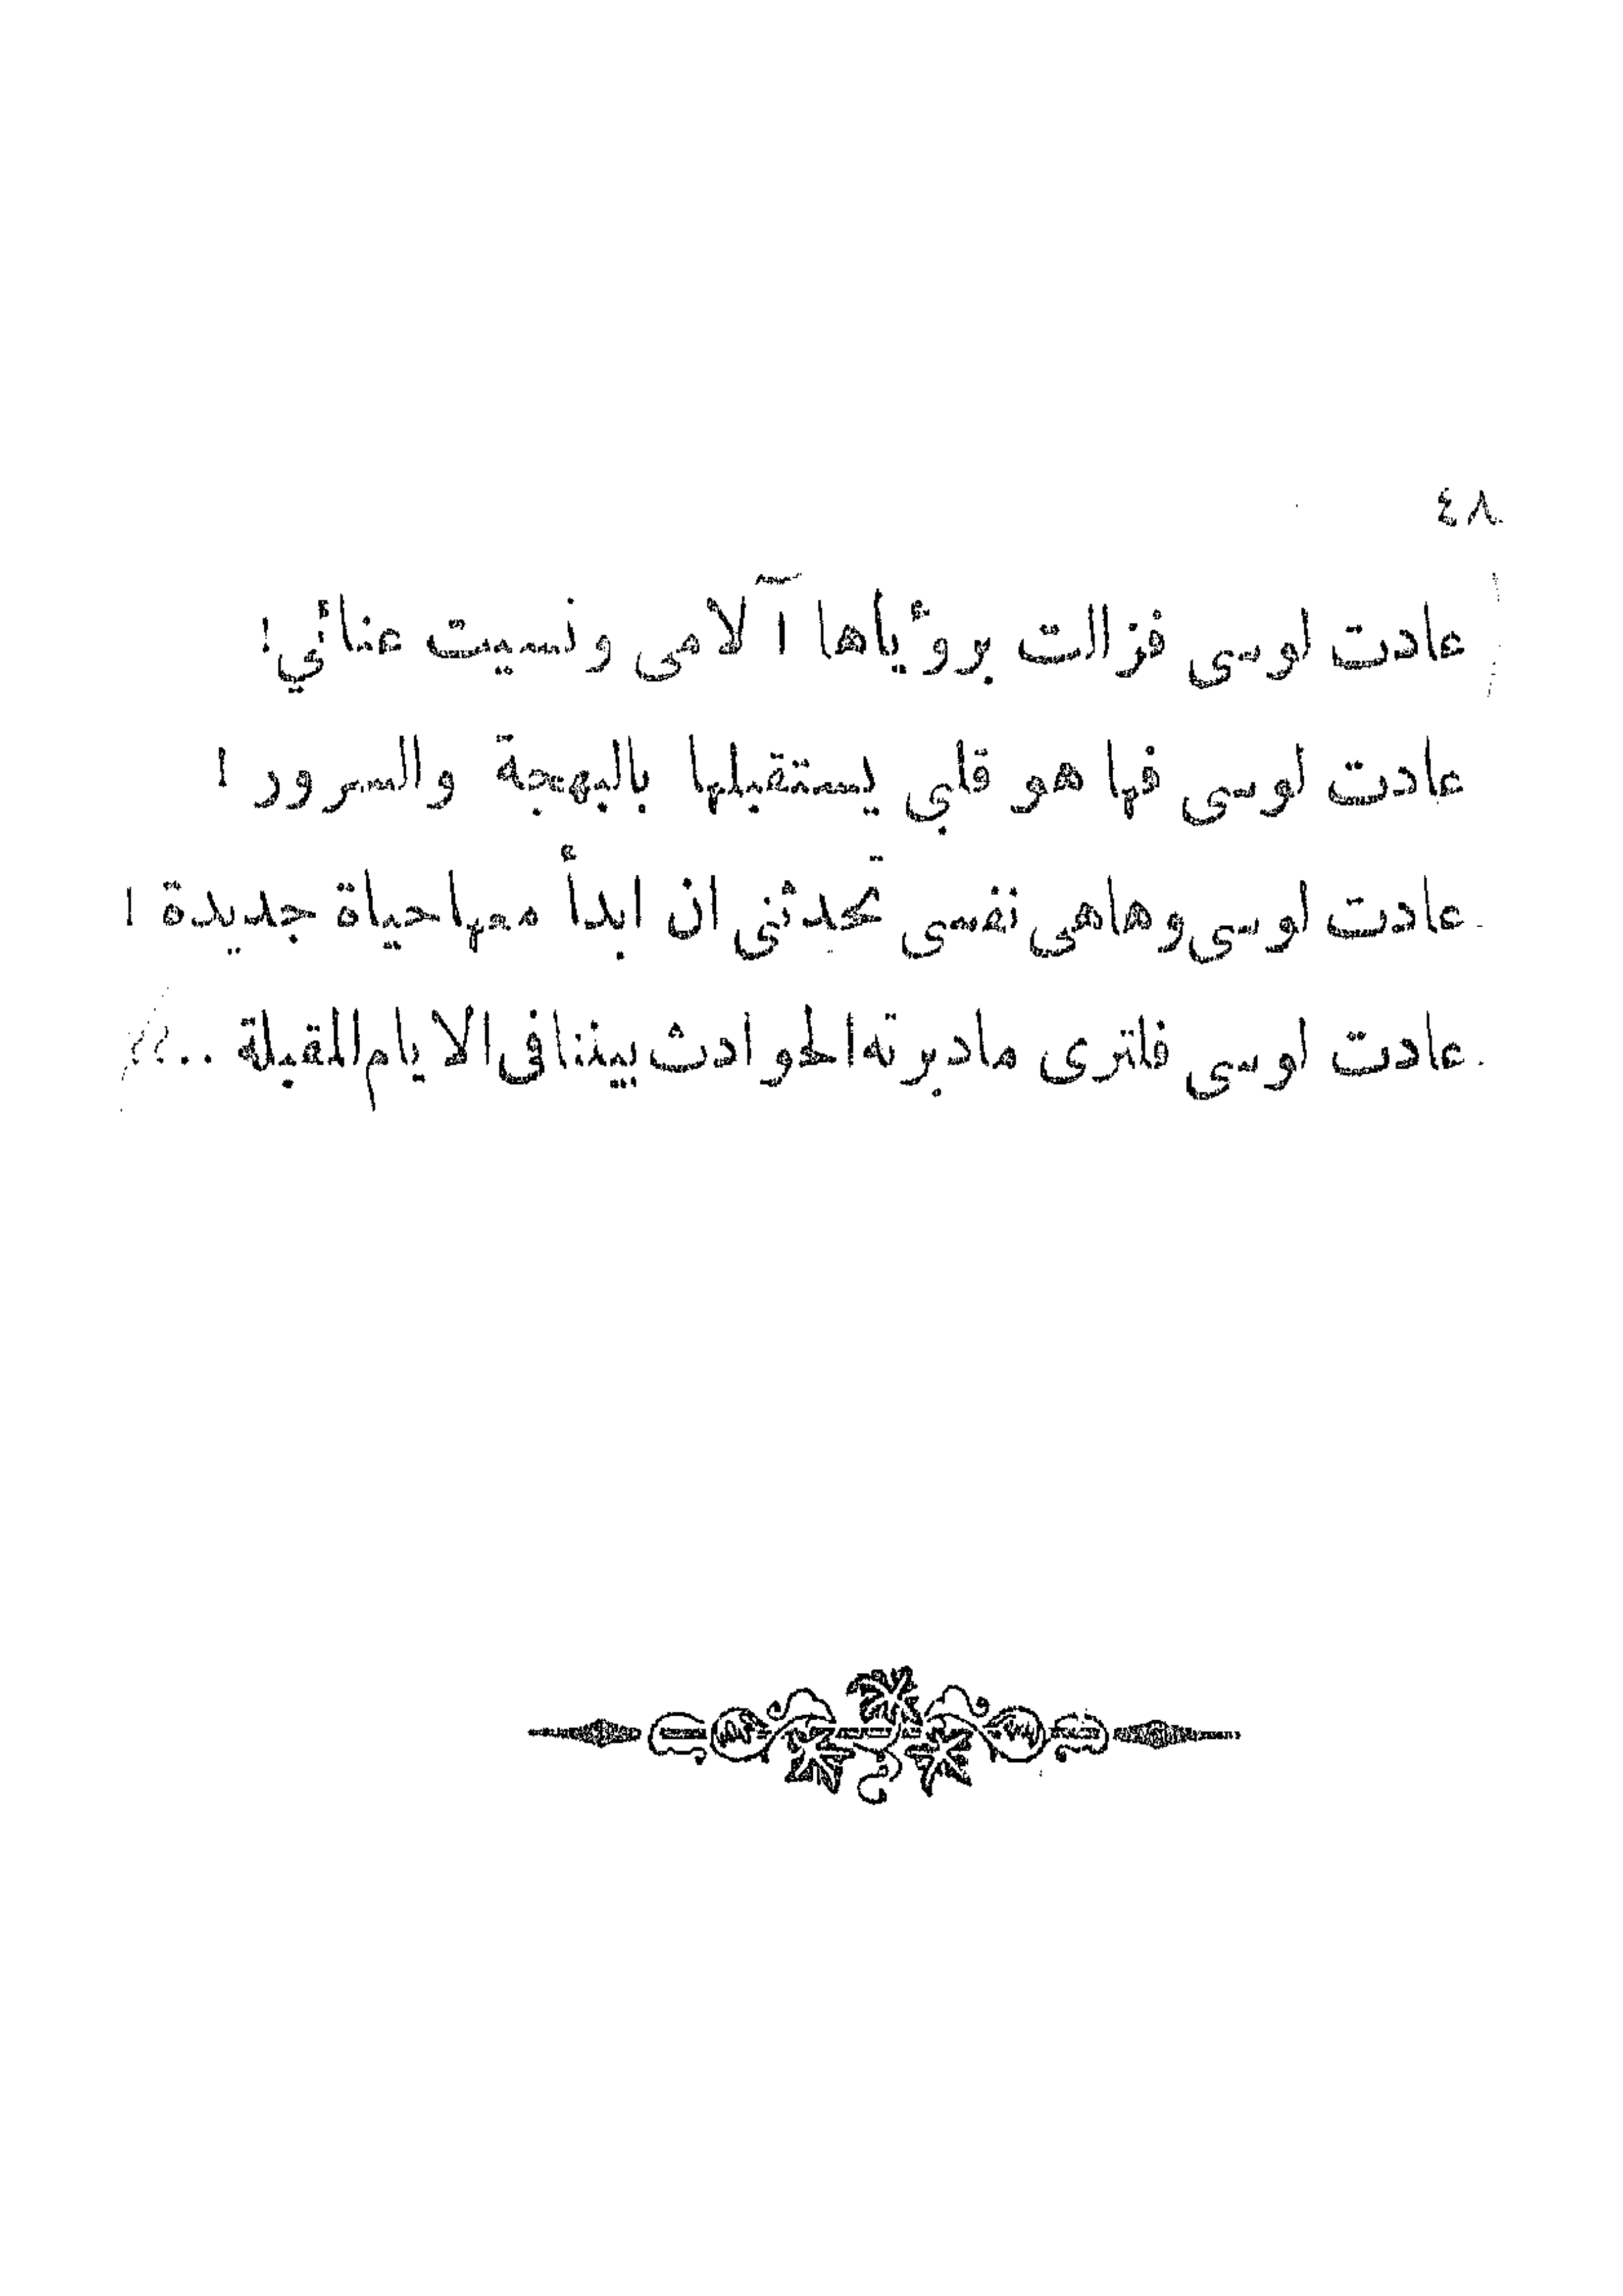 ٤٨
عادت لوسى فزالت برؤياها آلامى ونسيت عنائي!
عادت لوسى فها هو قلبي يستقبلها بالبهجة والسرور !
عادت لوسى وهاهى نفسى تحدثنى ان ابدأ معها حياة جديدة !
عادت لوسى فلترى مادبرته الحوادث بيننا فى الايام المقبلة ..